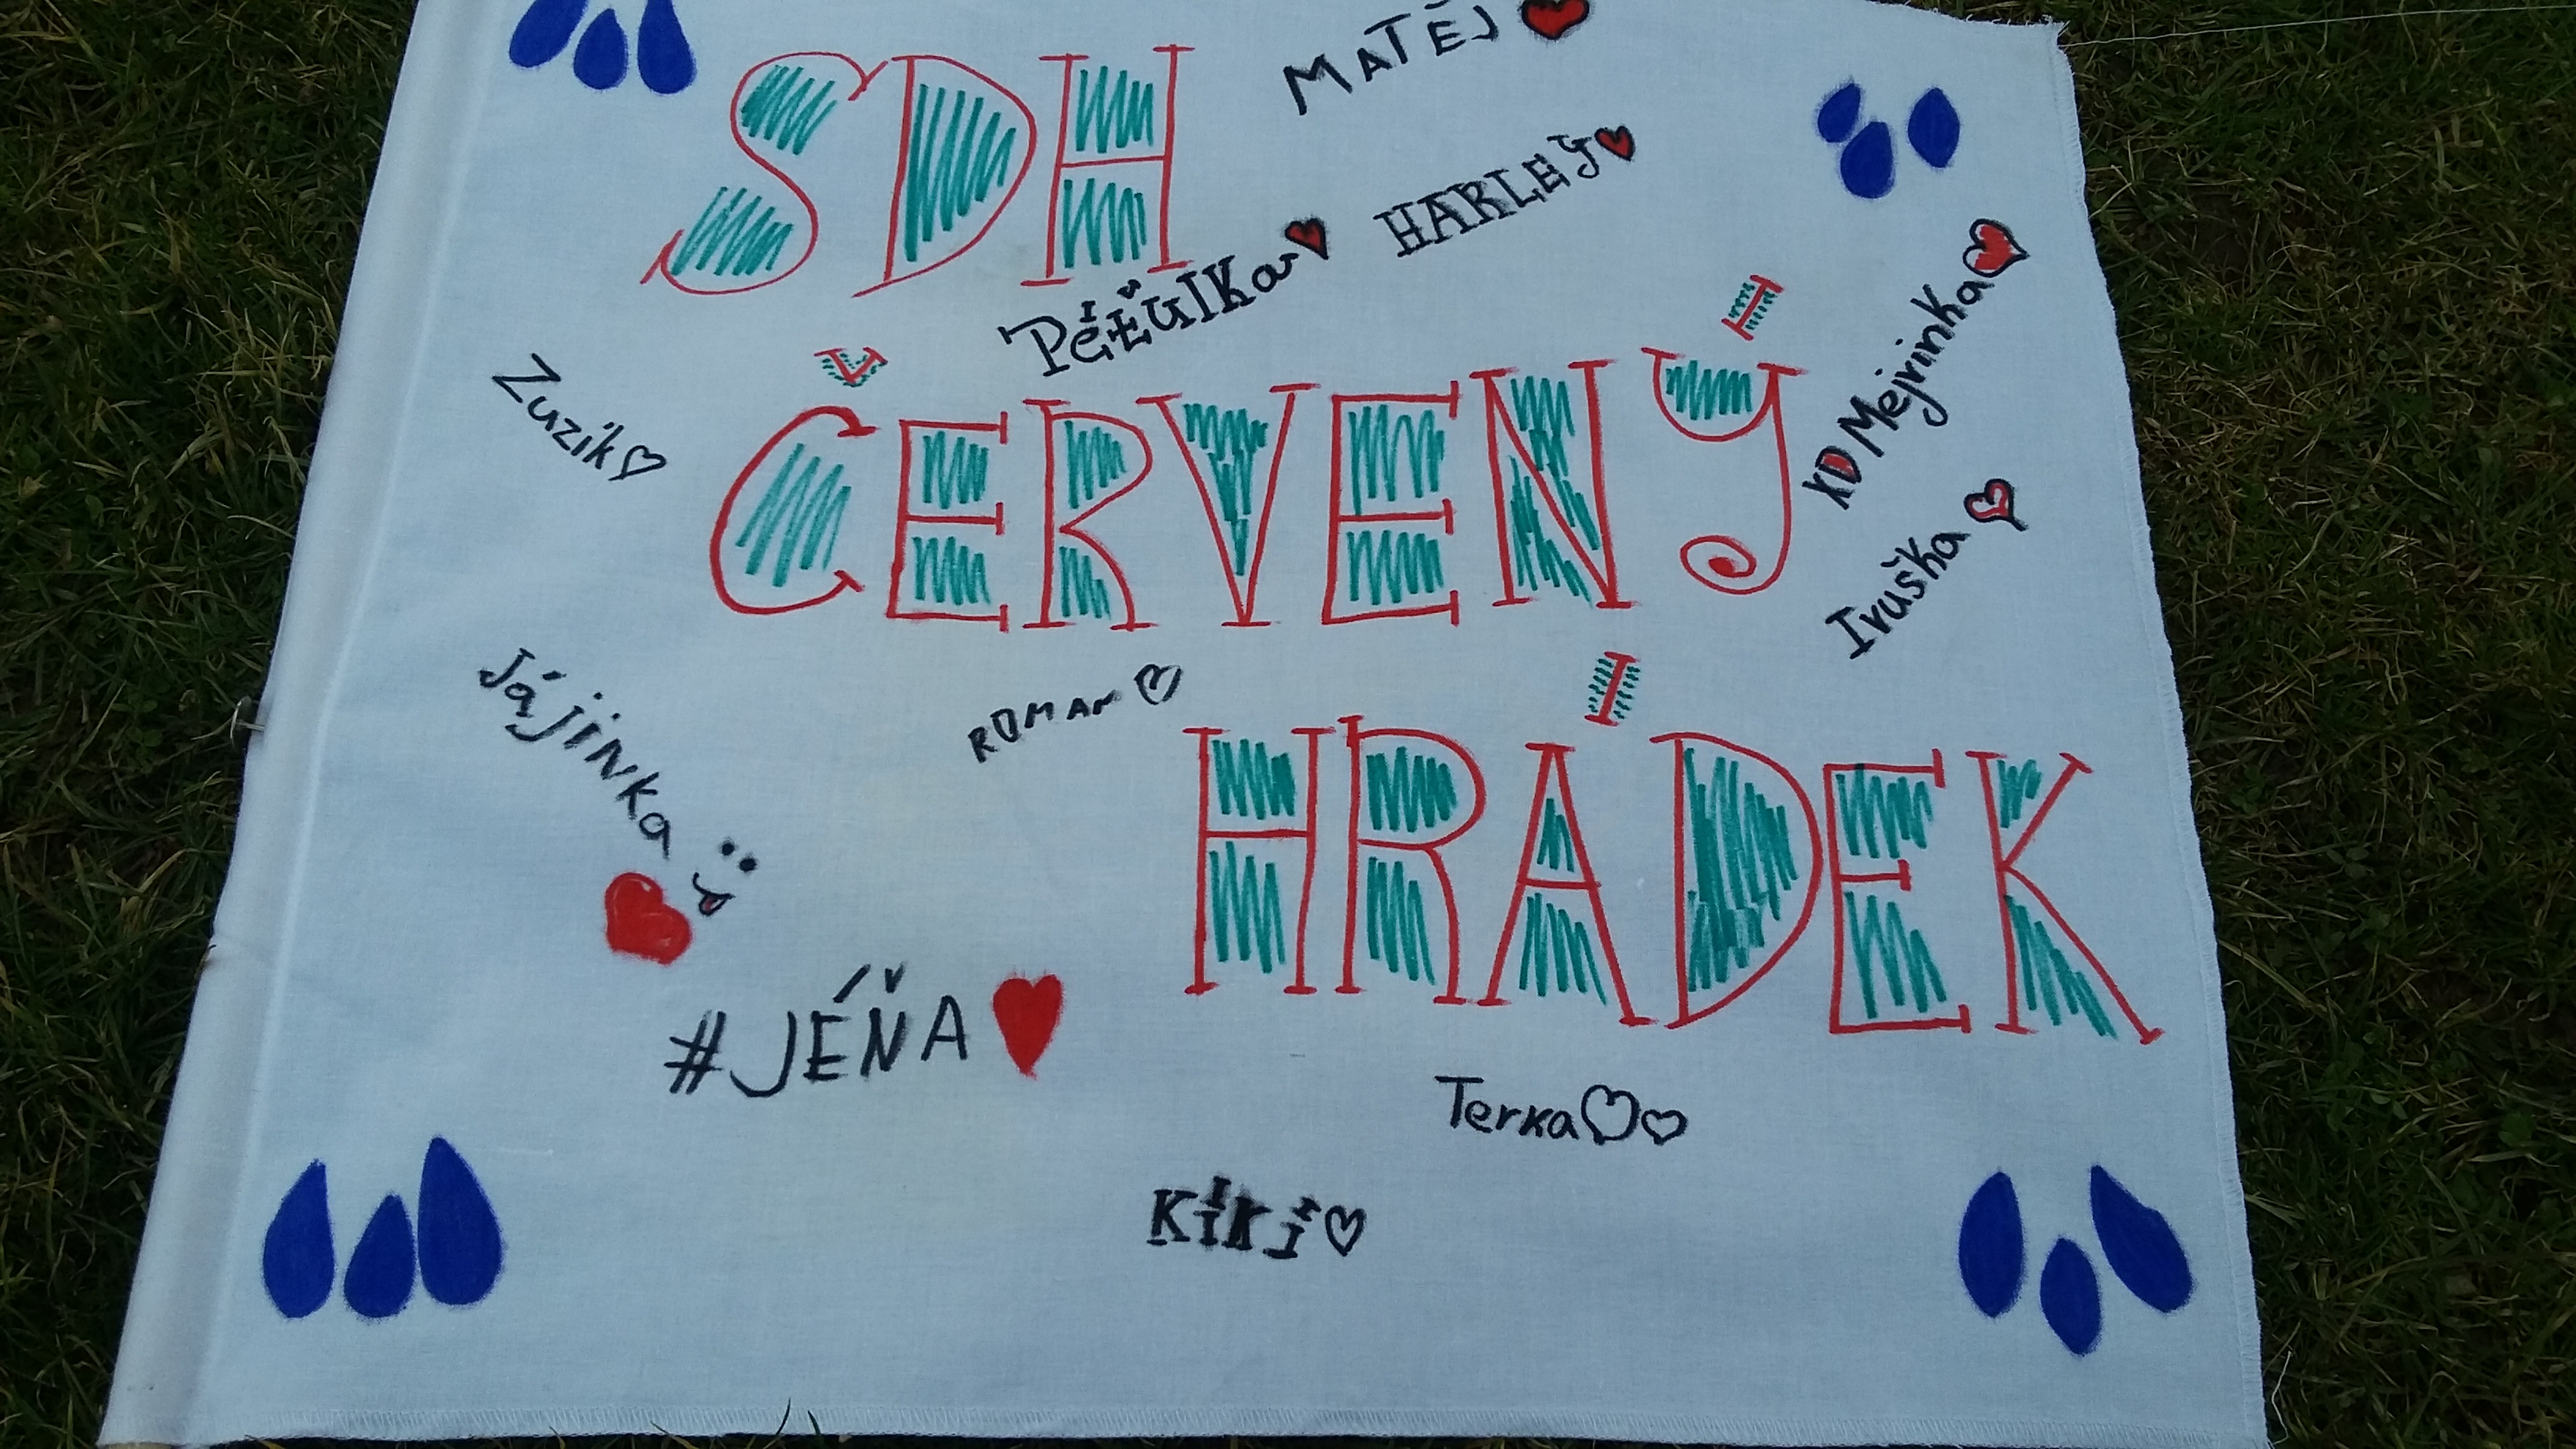 SDH
MATĚJ
HARLEY
Péťulka
ČERVENÝ
Zuzik
XD Mejrinka
Iruška
Jájinka
ROMAN
HRÁDEK
#JÉŇA
Terka
KÍKÍ